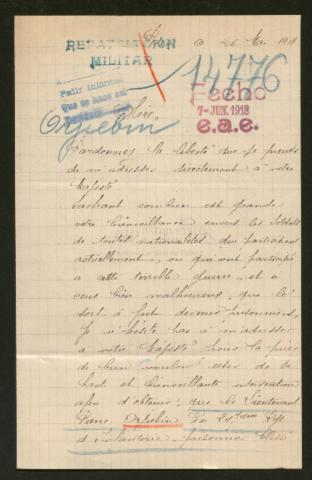 REPATRIACION
MILITAR
26 Mai 1918
14776
Pedir informes
Que se hace asi
Fecho
7-JUN. 1918
e.a.e.
Orfiebin
Sire,
Pardonnez la liberté que je prends
de m'adresser directement à votre
Majesté
Sachant combien est grande
votre bienveillance envers les Soldats
de toutes nationalités qui participent
actuellement, ou qui ont participé
a cette terrible guerre, et a
ceux bien malheureux, que le
sort à fait devenir prisonniers,
Je n'hésite pas à m'adresser
a votre Majesté pour la prier
de bien vouloir user de sa
haute et bienveillante intervention
afin d'obtenir, que le Lieutenant
Pierre Orfiebin du
d'infanterie, prisonnier